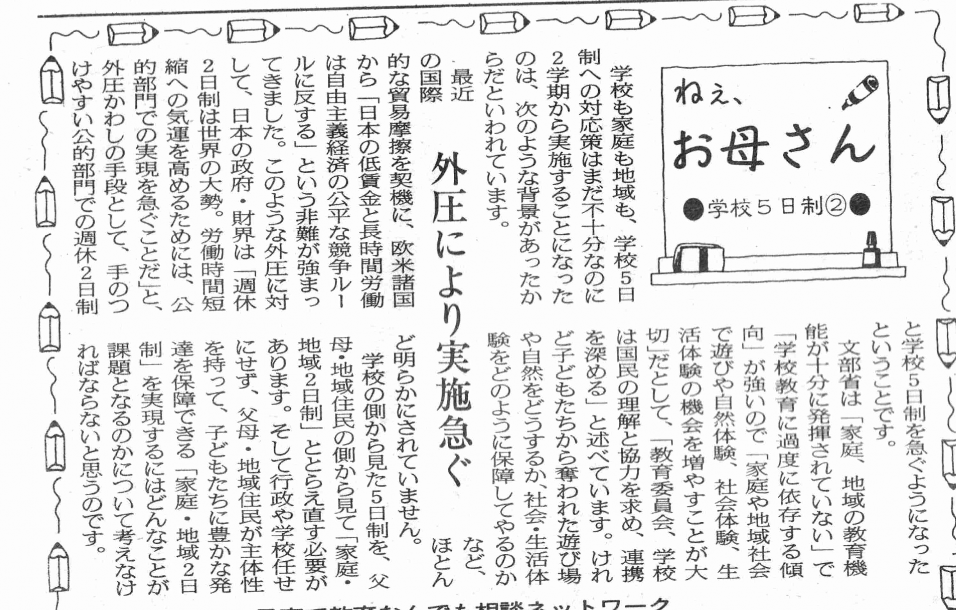 ねぇ、
お母さん
●学校5日制②●
外圧により実施急ぐ
学校も家庭も地域も、学校5日
制への対応策はまだ不十分なのに
2学期から実施することになった
のは、次のような背景があったか
らだといわれています。
最近
の国際
的な貿易摩擦を契機に、欧米諸国
から「日本の低賃金と長時間労働
は自由主義経済の公平な競争ルー
ルに反する」という非難が強まっ
てきました。このような外圧に対
して、日本の政府・財界は「週休
2日制は世界の大勢。労働時間短
縮への気運を高めるためには、公
的部門での実現を急ぐことだ」と、
外圧かわしの手段として、手のつ
けやすい公的部門での週休2日制
と学校5日制を急ぐようになった
ということです。
文部省は「家庭、地域の教育機
能が十分に発揮されていない」で
「学校教育に過度に依存する傾
向」が強いので「家庭や地域社会
で遊びや自然体験、社会体験、生
活体験の機会を増やすことが大
切」だとして、「教育委員会、学校
は国民の理解と協力を求め、連携
を深める」と述べています。けれ
ど子どもたちから奪われた遊び場
や自然をどうするか、社会・生活体
験をどのように保障してやるのか
など、
ほとん
ど明らかにされていません。
学校の側から見た5日制を、父
母・地域住民の側から見て「家庭・
地域2日制」ととらえ直す必要が
あります。そして行政や学校任せ
にせず、父母・地域住民が主体性
を持って、子どもたちに豊かな発
達を保障できる「家庭・地域2日
制」を実現するにはどんなことが
課題となるのかについて考えなけ
ればならないと思うのです。
教育なんでも相談ネットワーク